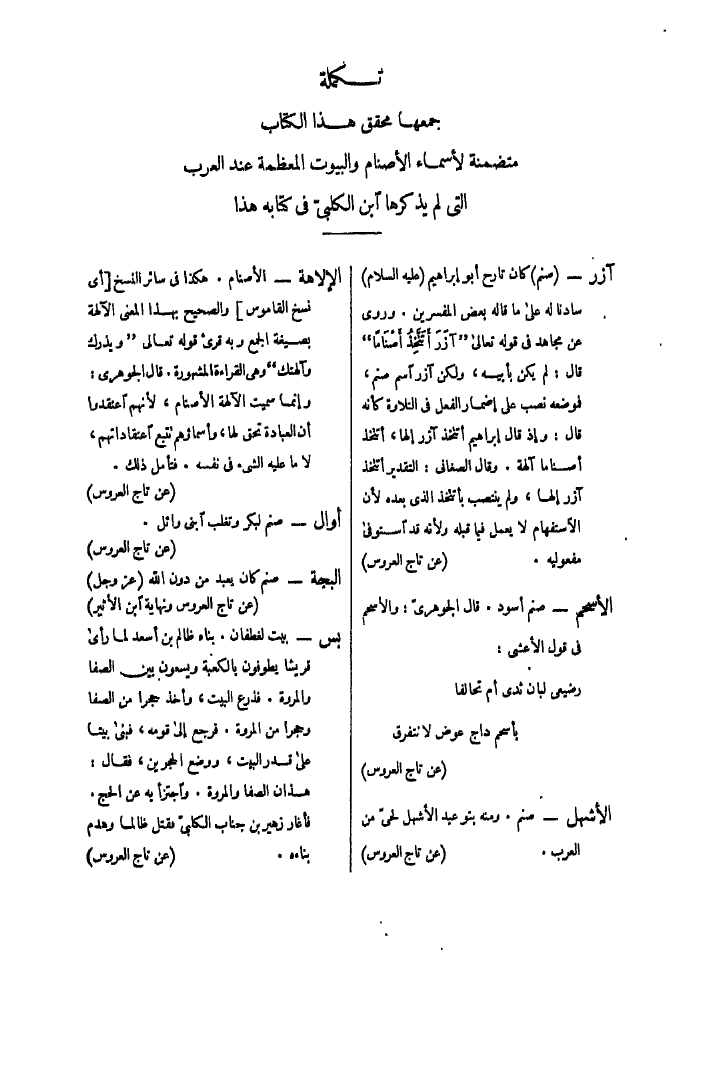 تكملة
جمعها محقق هذا الكتاب
متضمنة لأسماء الأصنام والبيوت المعظمة عند العرب
التى لم يذكرها آبن الكلبىّ فى كتابه هذا
آزر — (صنم) كان تارح أبو إبراهيم (عليه السلام)
سادنا له علىٰ ما قاله بعض المفسرين . وروى
عن مجاهد فى قوله تعالىٰ ”آزَرَ أَتَتَّخِذُ أَصْنَامًا“
قال : لم يكن بأبيه ، ولكن آزر آسم صنم ،
فموضعه نصب على إضمار الفعل فى التلاوة كأنه
قال : وإذ قال إبراهيم أتتخذ آزر إلها ، أتتخذ
أصناما آلهة . وقال الصغانى : التقدير أتتخذ
آزر إلها ، ولم ينتصب بأتتخذ الذى بعده لأن
الآستفهام لا يعمل فيما قبله ولأنه قد آستوفىٰ
مفعوليه . (عن تاج العروس)
الأسحم — صنم أسود . قال الجوهرىّ : والأسحم
فى قول الأعشى :
رضيعى لبان ثدى أم تحالفا
بأسحم داج عوض لا نتفرق
(عن تاج العروس)
الأشهل — صنم . ومنه بنو عبد الأشهل لحىّ من
العرب . (عن تاج العروس)
الإلاهة — الأصنام . هكذا فى سائر النسخ [أى
نسخ القاموس] والصحيح بهذا المعنى الآلهة
بصيغة الجمع وبه قرئ قوله تعالى ”ويذرك
وآلهتك“ وهى القراءة المشهورة . قال الجوهرى :
وإنما سميت الآلهة الأصنام ، لأنهم آعتقدوا
أن العبادة تحق لها ، وأسماؤهم تتبع آعتقاداتهم ،
لا ما عليه الشىء فى نفسه . فتأمل ذلك .
(عن تاج العروس)
أوال — صنم لبكر وتغلب آبنى وائل .
(عن تاج العروس)
البجة — صنم كان يعبد من دون الله (عز وجل)
(عن تاج العروس ونهاية آبن الأثير)
بس — بيت لغطفان . بناه ظالم بن أسعد لما رأىٰ
قريشا يطوفون بالكعبة ويسعون بين الصفا
والمروة . فذرع البيت ، وأخذ حجرا من الصفا
وحجرا من المروة . فرجع إلىٰ قومه ، فبنىٰ بيتا
علىٰ قدر البيت ، ووضع الحجرين ، فقال :
هذان الصفا والمروة . وآجتزأ به عن الحج .
فأغار زهير بن جناب الكلبىّ فقتل ظالما وهدم
بناءه . (عن تاج العروس)